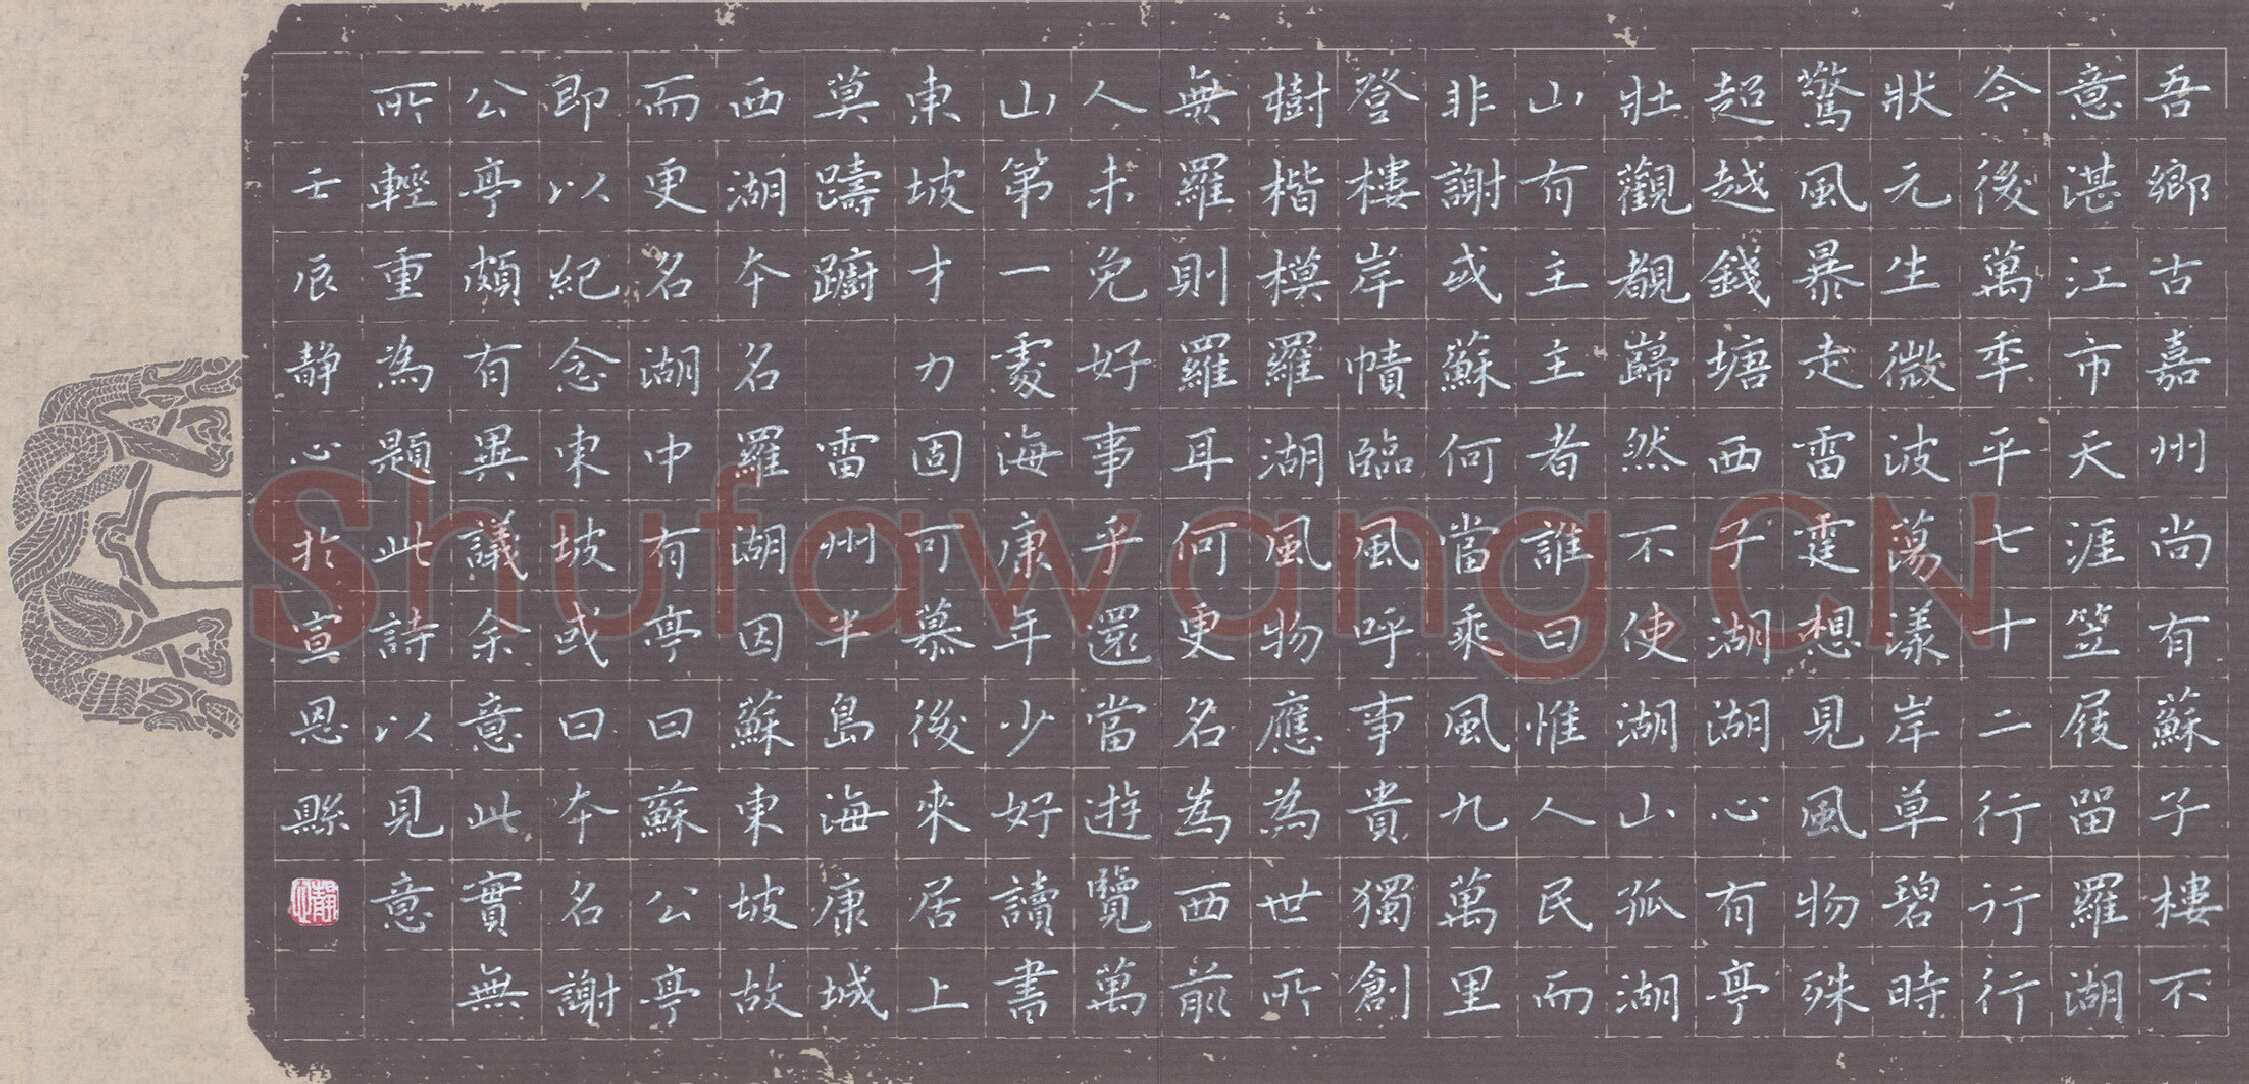 吾鄉古嘉州尚有蘇子樓不
意湛江市天涯笠屐留羅湖
今後萬季平七十二行行行
狀元生微波蕩漾岸草碧時
驚風暴走雷霆想見風物殊
超越錢塘西子湖湖心有亭
壯觀覩巋然不使湖山孤湖
山有主主者誰曰惟人民而
非謝或蘇何當乘風九萬里
登樓岸幘臨風呼事貴獨創
樹楷模羅湖風物應為世所
無羅則羅耳何更名為西前
人未免好事乎還當遊覽萬
山第一處海康年少好讀書
東坡才力固可慕後來居上
莫躊躕 雷州半島海康城
西湖本名羅湖因蘇東坡故
而更名湖中有亭曰蘇公亭
即以紀念東坡或曰本名謝
公亭頗有異議余意此實無
所輕重為題此詩以見意
壬辰靜心於宣恩縣
靜心
Shufawang.CN